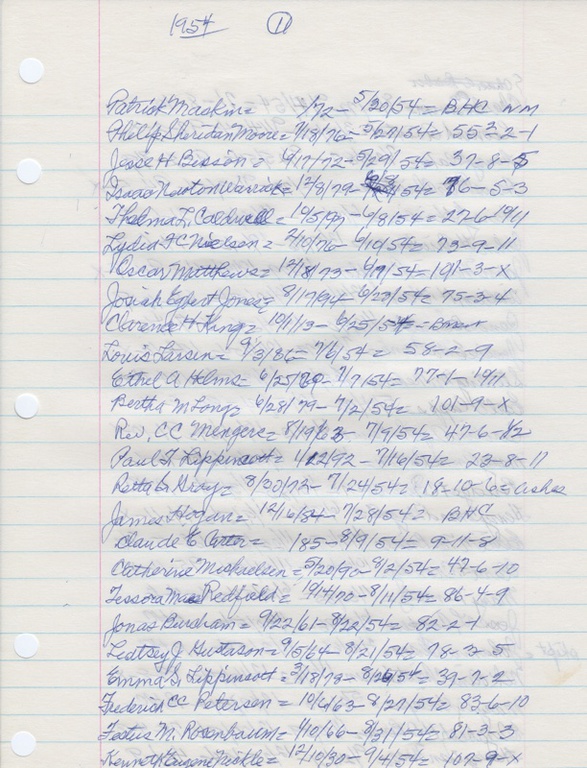 1954 11
Patrick Maskin = /72 - 5/20/54 = BHC NM
Philip Sheridan Moore = 9/18/76 - 5/27/54 = 55-2-1
Jesse H Bisson = 9/17/72 - 5/29/54 = 37-8-5
Isaac Newton Warrick = 12/8/79 - /54 = 76-5-3
Thelma L. Caldwell = 10/5/97 - 6/8/54 = 27-6-10/11
Lydia FC Nielson = 2/10/76 - 6/10/54 = 73-9-11
Oscar Matthews = 12/18/73 - 6/19/54 = 101-3-X
Josiah Egbert Jones = 8/17/94 - 6/23/54 = 75-3-4
Clarence H King = 10/1/13 - 6/25/54 -
Louis Larsen = 9/3/86 - 7/6/54 = 58-2-9
Ethel A Helms = 6/25/79 - 7/7/54 = 77-1-10/11
Bertha M Long = 6/28/79 - 7/2/54 = 101-9-X
Rev. CC Mengers = 8/19/63 - 7/9/54 = 47-6-1/2
Paul F. Lippincott = 4/22/92 - 7/16/54 = 23-8-11
Retta G Gray = 8/30/72 - 7/24/54 = 18-10-6 - Ashes
James Hogan = 12/16/84 - 7/28/54 = BHC
Claude E Carter = 185 - 8/9/54 = 9-11-8
Catherine Michaelsen = 5/20/90 - 8/2/54 = 47-6-10
Tessora Mae Redfield = 10/14/70 - 8/11/54 = 86-4-9
Jonas Burdham = 9/22/61 - 8/22/54 = 82-2-1
Gustason = 9/5/64 - 8/21/54 = 78-3-5
Emma S. Lippincott = 3/18/73 - 8/26/54 = 39-7-2
Frederick CC Peterson = 10/6/63 - 8/27/54 = 83-6-10
Festus M. Rosenbaum = 4/10/66 - 8/31/54 = 81-3-3
Kenneth Eugene Nickle = 12/10/30 - 9/4/54 = 107-9-X